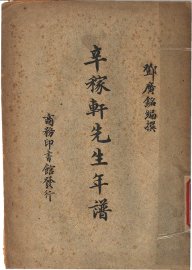 鄧廣銘編撰
辛稼軒先生年譜
商務印書館發行